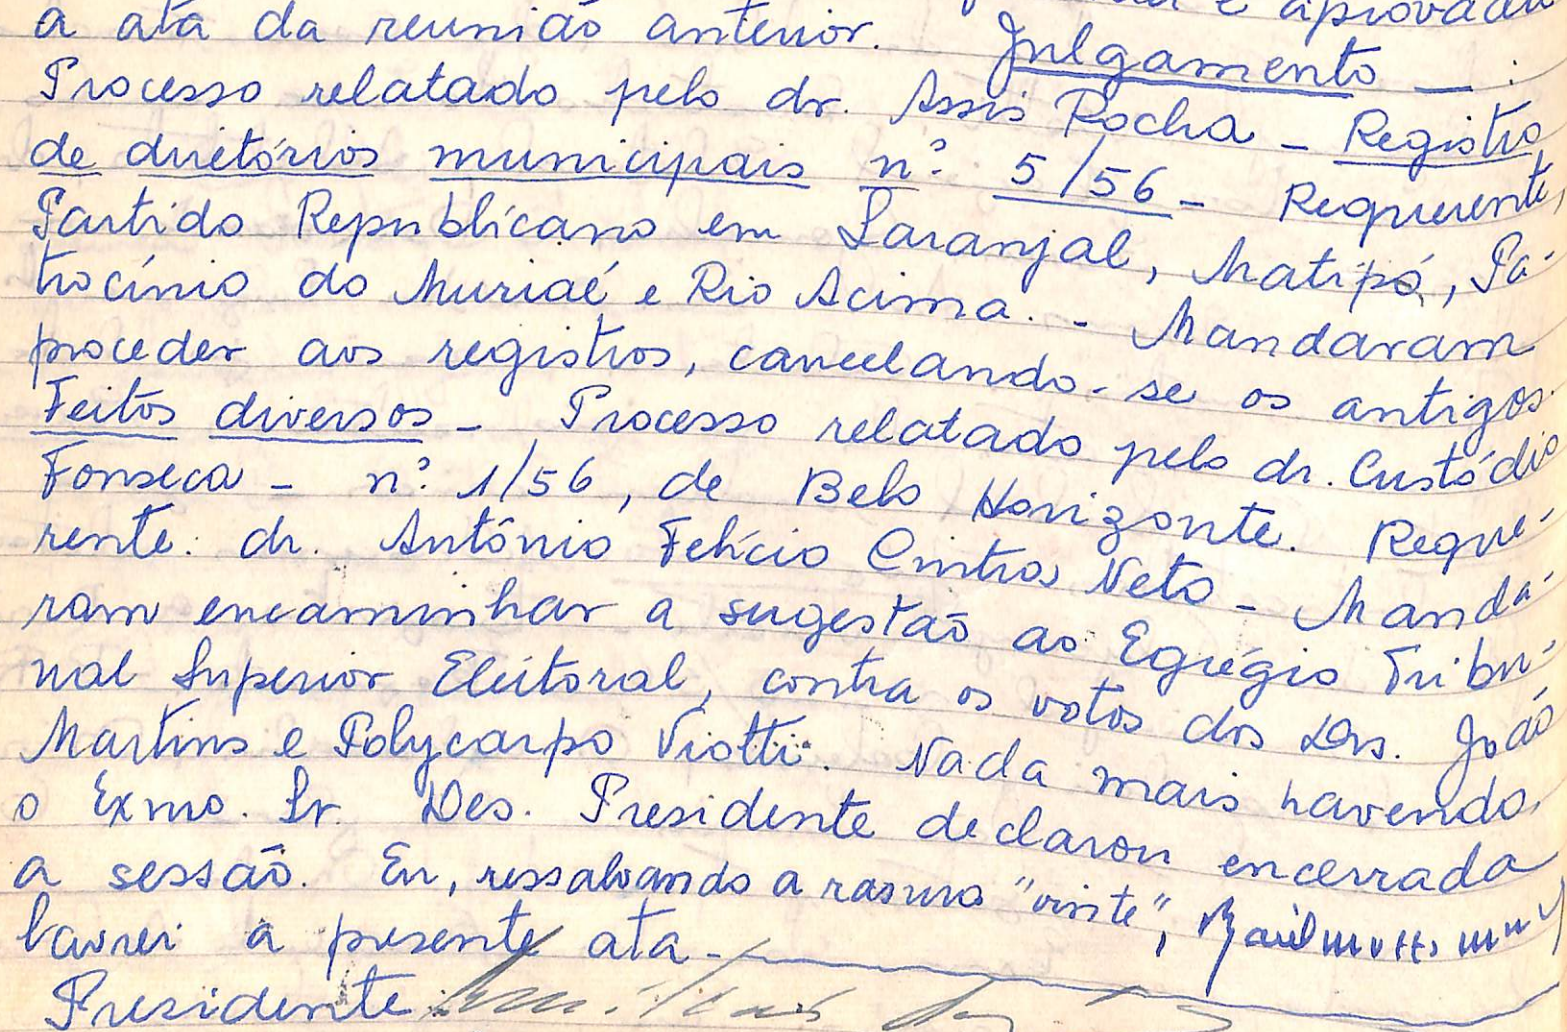 e aprovada
a ata da reunião anterior. Julgamento — :
Processo relatado pelo dr. Assis Rocha - Registro
de diretórios municipais n.º 5/56 - Requerente,
Partido Republicano em Laranjal, Matipó, Pa-
trocínio do Muriaé e Rio Acima. - Mandaram
proceder aos registros, cancelando-se os antigos.
Feitos diversos - Processo relatado pelo dr. Custódio
Fonseca - n.º 1/56, de Belo Horizonte. Reque-
rente: dr. Antônio Felício Cintra Neto - Manda-
ram encaminhar a sugestão ao Egrégio Tribu-
nal Superior Eleitoral, contra os votos dos Drs. João
Martins e Polycarpo Viotti. Nada mais havendo,
o Exmo. Sr. Des. Presidente declarou encerrada
a sessão. Eu, ressalvando a rasura "vinte",
lavrei a presente ata -
Presidente: